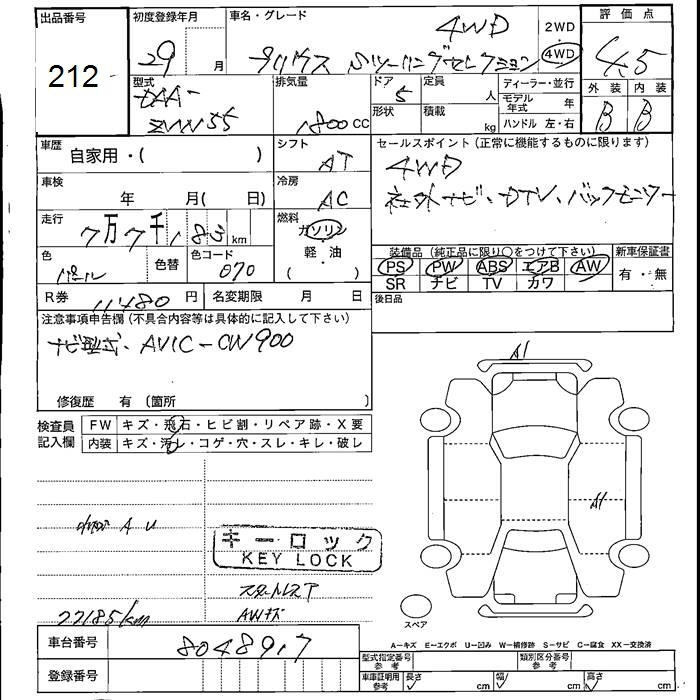 出品番号
212
初度登録年月
29 月
車名・グレード
4WD
プリウス Sツーリングセレクション
2WD
・
4WD
評価点
4.5
外装 内装
B B
型式
DAA-
ZVW55
排気量
1800cc
ドア
5
形状
定員 人
積載 kg
ディーラー・並行
モデル年式 年
ハンドル 左・右
車歴 自家用・( )
シフト
AT
セールスポイント(正常に機能するものに限ります)
4WD
社外ナビ・DTV・バックモニター
車検 年 月( 日)
冷房
AC
走行 7万7千185km
燃料
ガソリン
・
軽・油
( )
色
パール
色替
色コード
070
装備品(純正品に限り○をつけて下さい)
PS PW ABS エアB AW
SR ナビ TV カワ
新車保証書
有・無
R券 11480円
名変期限 月 日
後日品
注意事項申告欄(不具合内容等は具体的に記入して下さい)
ナビ型式・AVIC-CW900
修復歴 有 (箇所 )
検査員記入欄
FW キズ・飛石・ヒビ割・リペア跡・X要
内装 キズ・汚レ・コゲ・穴・スレ・キレ・破レ
A1
A1
A U
キーロック
KEY LOCK
スタッドレスT
AWキズ
77185km
スペア
A-キズ E-エクボ U-凹み W-補修跡 S-サビ C-腐食 XX-交換済
車台番号 8048917
登録番号
型式指定番号参考
類別区分番号参考
車庫証明用参考
長さ cm
幅 cm
高さ cm